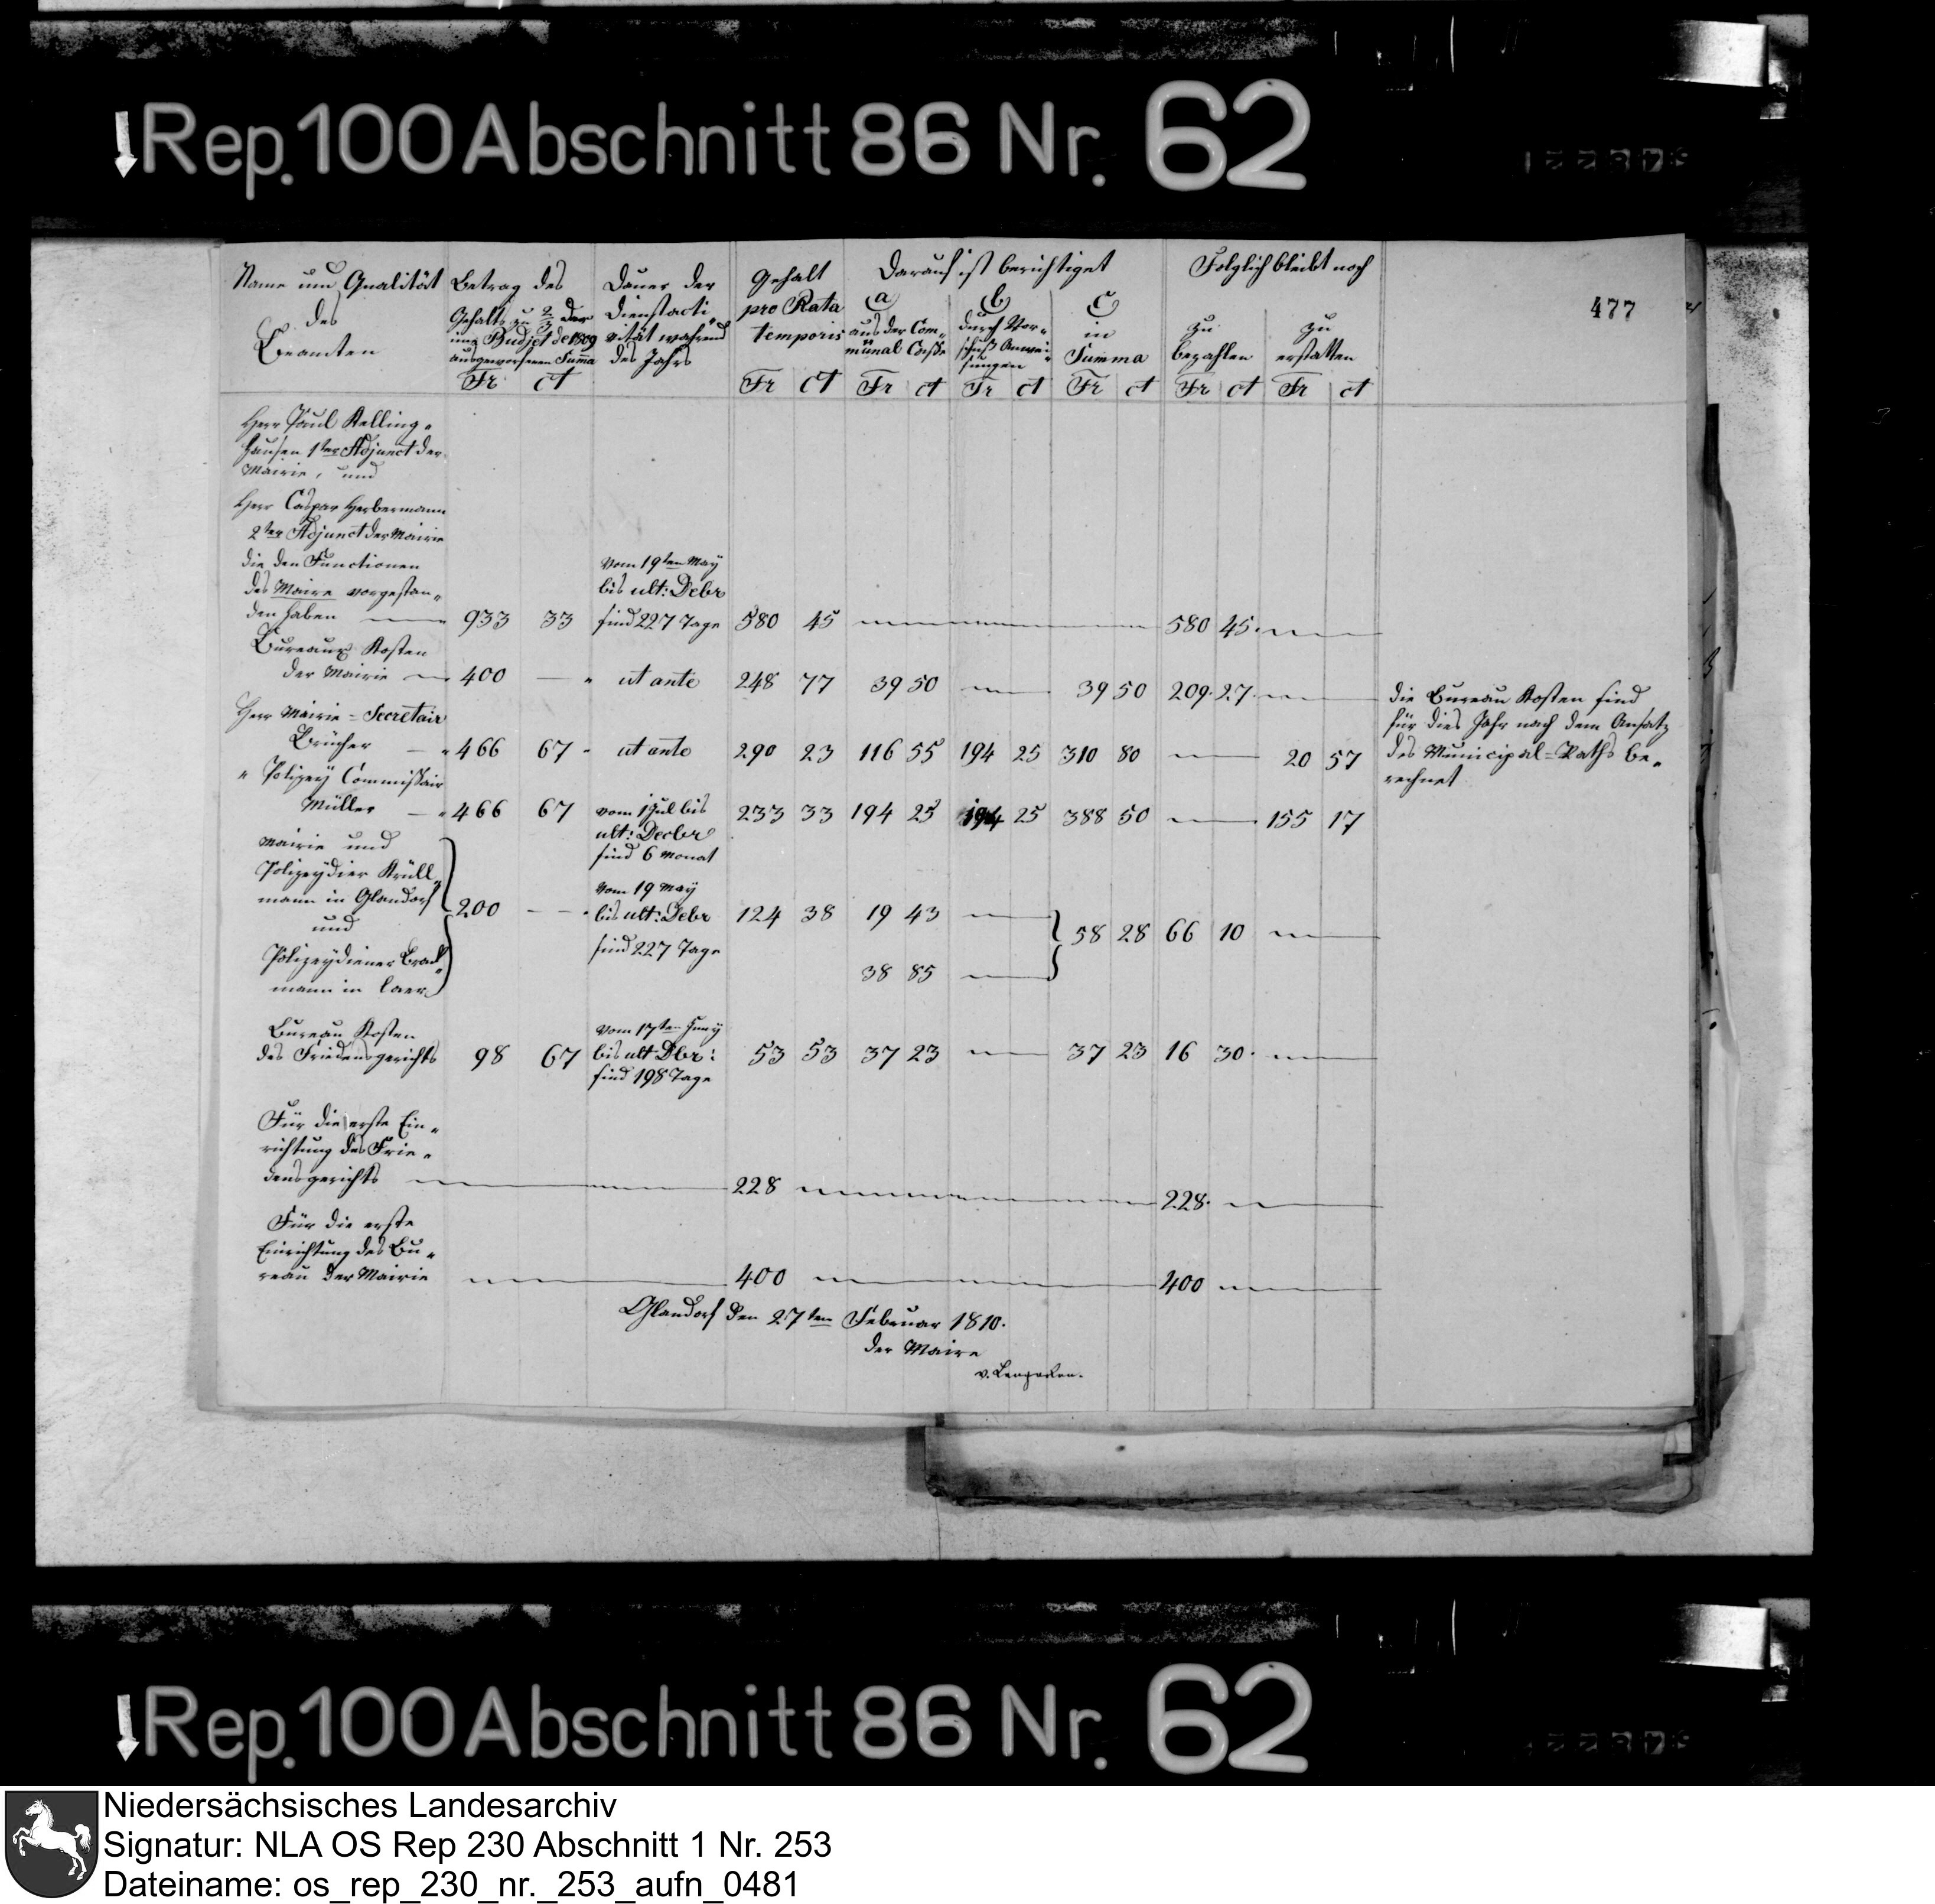 Rep. 100 Abschnitt 86 Nr. 62
477
Name und Qualität
des
Beamten
Betrag des
Gehalts zu 2/3 der
ins Budjet de 1809
ausgeworfenen Summa
Fr ct
Dauer der
Dienstacti„
vität während
des Jahrs
Gehalt
pro Rata
temporis
Fr ct
Darauf ist berichtiget
(a)
aus der Com„
münal Casse
Fr ct
(b)
durch Vor„
schuß Anwei„
sungen
Fr ct
(c)
in
Summa
Fr ct
Folglich bleibt noch
zu
bezahlen
Fr ct
zu
erstatten
Fr ct
Herr Paul Kelling„
hausen 1ter Adjunct der
Mairie, und
Herr Caspar Herbermann
2ter Adjunct der Mairie
die den Functionen
des Maire vorgestan„
den haben 933 33 vom 19ten May
bis ult: Debr
sind 227 Tage 580 45 580 45
Bureaux Kosten
der Mairie 400 — " ut ante 248 77 39 50 39 50 209 27
Herr Mairie-Secretair
Brücher 466 67 ut ante 290 23 116 55 194 25 310 80 20 57
" Polizey Commissair
Müller 466 67 vom 1 Jul bis
ult: Decbr
sind 6 Monat 233 33 194 25 194 25 388 50 155 17
Mairie und
Polizeydier Krüll„
mann in Glandorf
und
Polizeydiener
mann in Laer
200 vom 19 May
bis ult: Debr
sind 227 Tage 124 38 19 43 58 28 66 10
38 85
Bureau Kosten
des Friedensgerichts 98 67 vom 17ten Juny
bis ult Dbr:
sind 198 Tage 53 53 37 23 37 23 16 30
Für die erste Ein„
richtung des Frie„
densgerichts 228 228
Für die erste
Einrichtung des Bu„
reau der Mairie 400 400
die Bureau Kosten sind
für dies Jahr nach dem Ansatz
des Municipal-Raths be„
rechnet
Glandorf den 27ten Februar 1810.
der Maire
Rep. 100 Abschnitt 86 Nr. 62
Niedersächsisches Landesarchiv
Signatur: NLA OS Rep 230 Abschnitt 1 Nr. 253
Dateiname: os_rep_230_nr._253_aufn_0481